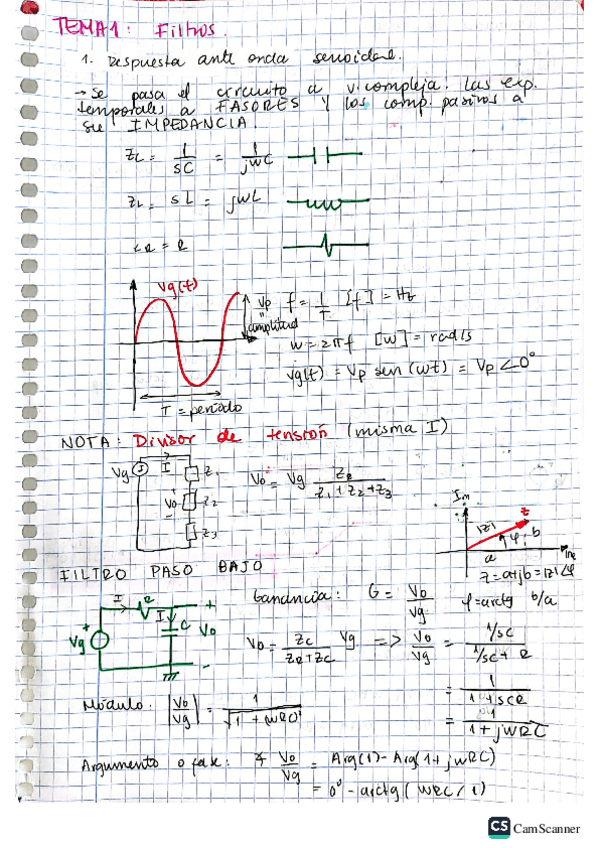 TEMA 1: Filtros.
1. Respuesta ante onda senoidal.
→ Se pasa el circuito a v. compleja. Las exp.
temporales a FASORES y los comp. pasivos a
su IMPEDANCIA.
Zc = 1/sC = 1/jωC
ZL = sL = jωL
ZR = R
Vg(t)
Vp
"
amplitud
f = 1/T [f] = Hz
ω = 2πf [ω] = rad/s
vg(t) = Vp sen (ωt) = Vp ∠0°
T = período
NOTA: Divisor de tensión (misma I)
Vg I Z1
+ Vo - Z2
Z3
Vo = Vg Z2/(Z1+Z2+Z3)
Im
|z| z
φ b
a Re
z = a+jb = |z|∠φ
φ = arctg b/a
FILTRO PASO BAJO
I R I
+ Vg C + Vo -
Ganancia: G = Vo/Vg
Vo = Zc/(ZR+Zc) Vg => Vo/Vg = (1/sC)/(1/sC + R)
= 1/(1+sCR)
= 1/(1+jωRC)
Módulo: |Vo/Vg| = 1/√(1+(ωRC)²)
Argumento o fase: ∡ Vo/Vg = Arg(1) - Arg(1+jωRC)
= 0° - arctg(ωRC/1)
CS CamScanner